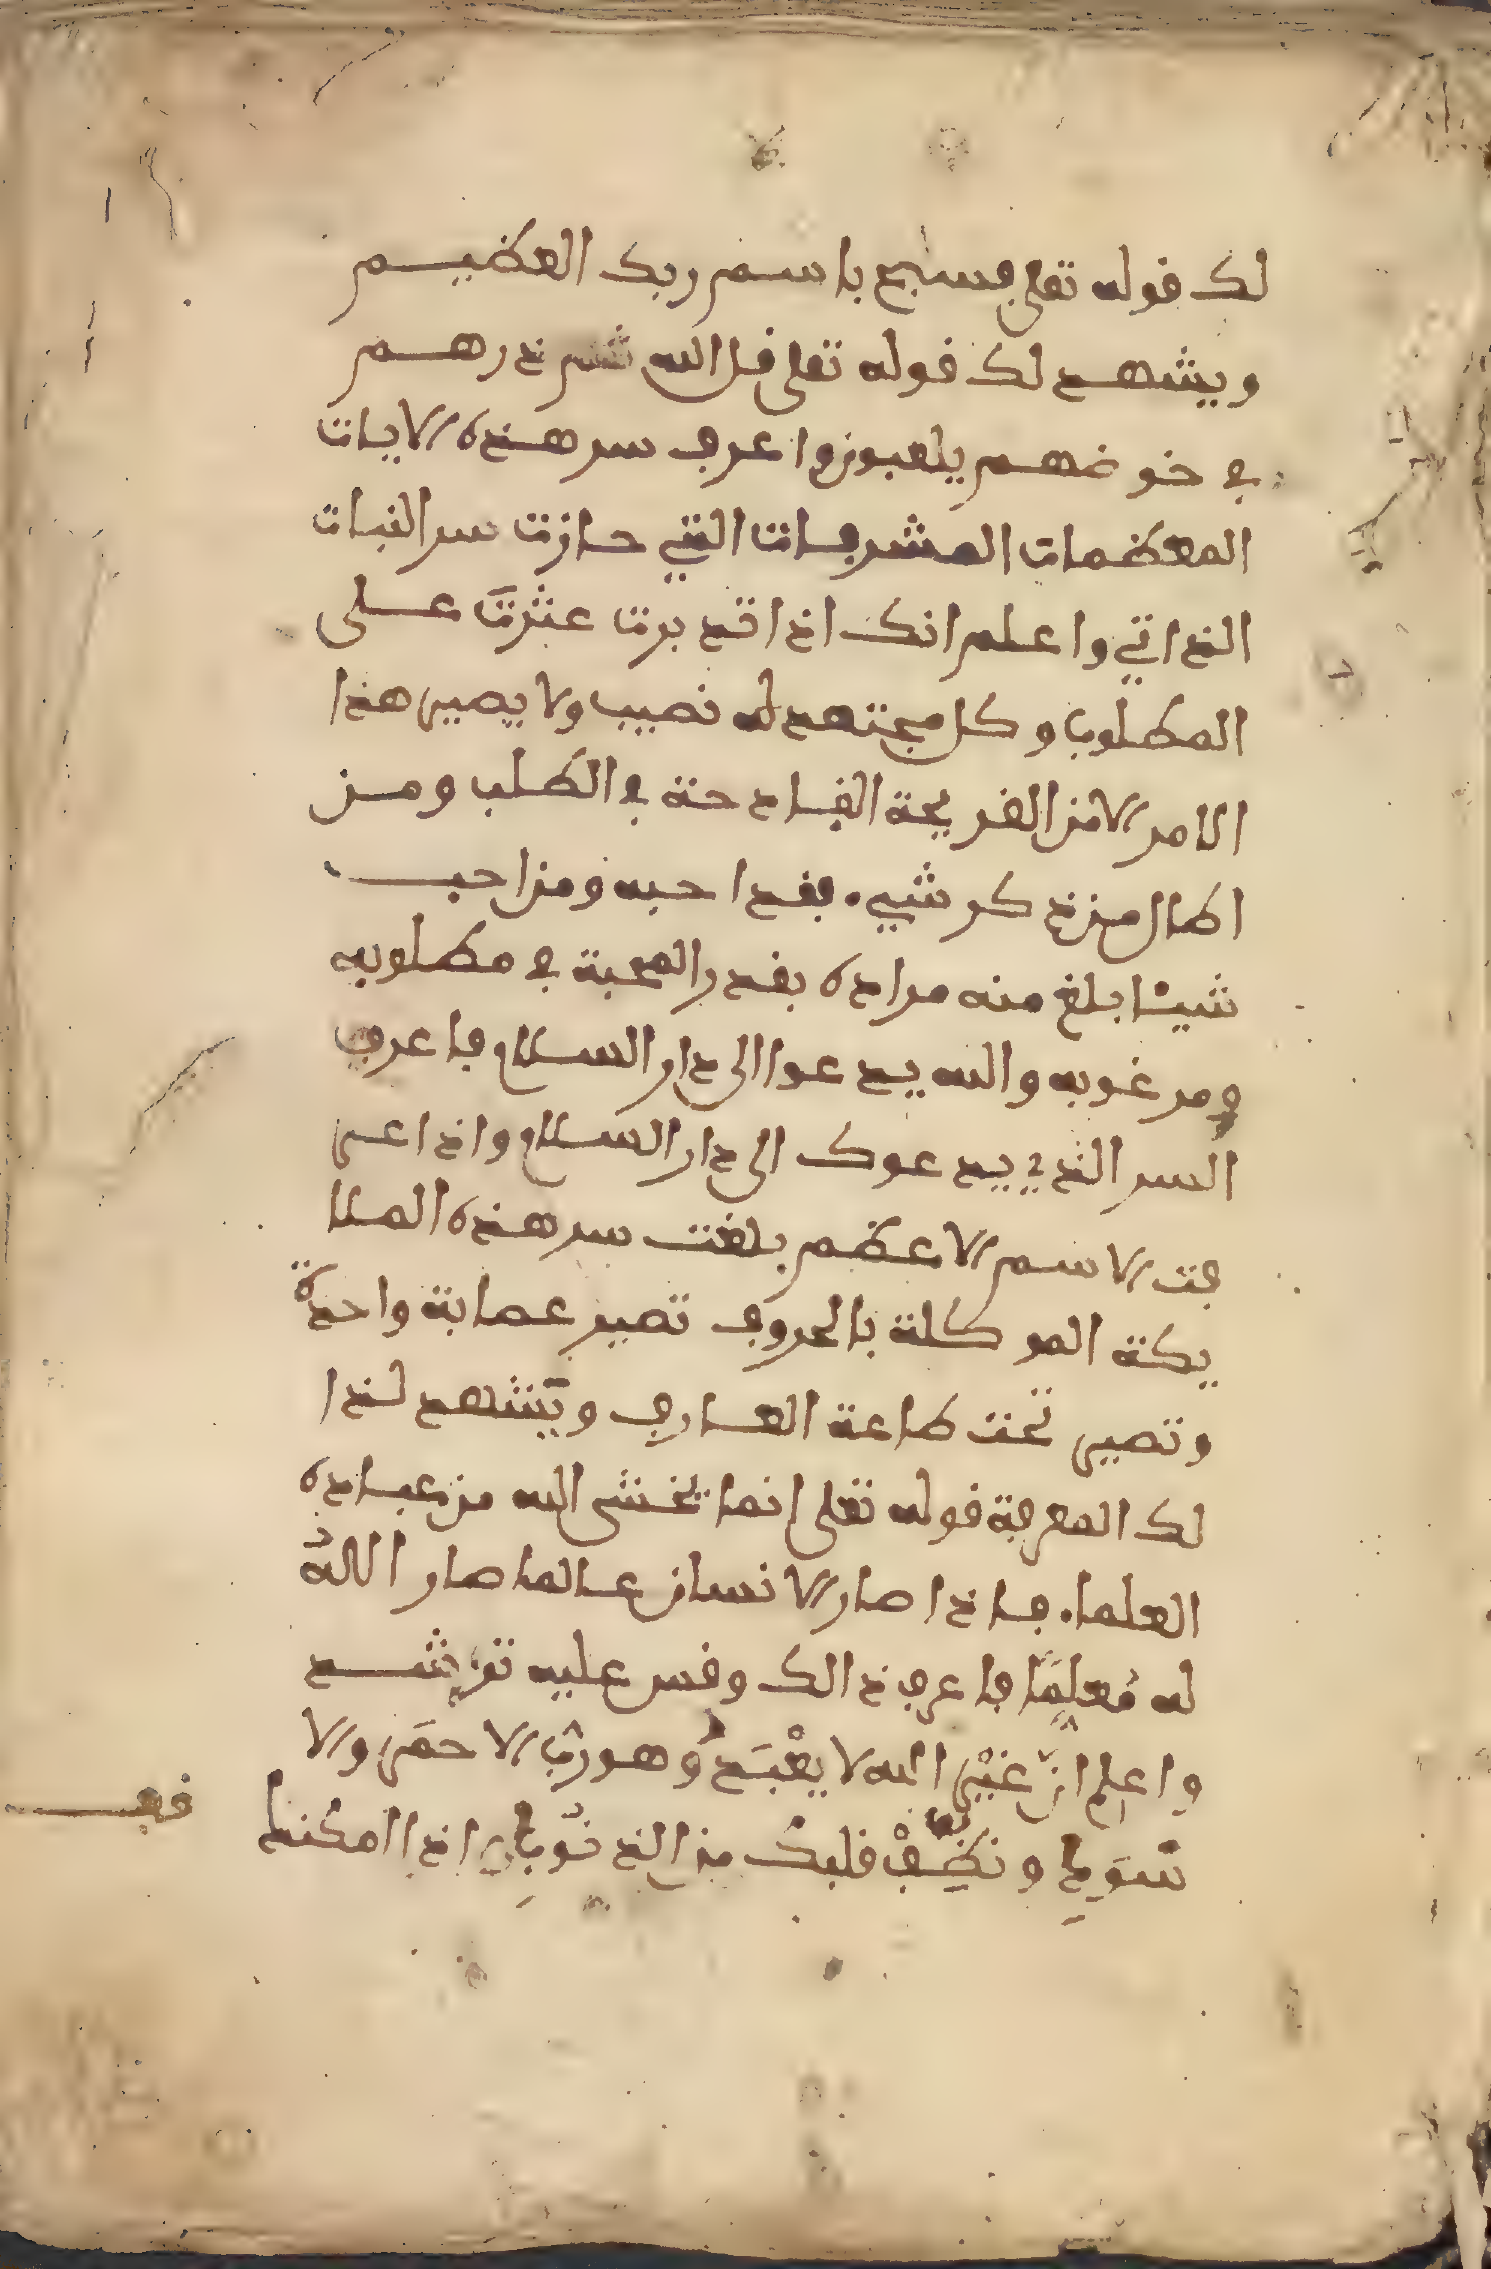 لك قوله تعلى فسبح باسم ربك العظيم
ويشهد لك قوله تعلى قل الله ثم ذرهم
في خوضهم يلعبون واعرف سر هذه الايات
المعظمات المشرفات التي حازت سر النبات
الذاتي واعلم انك اذا تدبرت عثرت على
المطلوب وكل مجتهد له نصيب ولا يصير هذا
الامر الا من القريحة القادحة في الطلب ومن
اطال من ذكر شيء فقد احبه ومن احب
شيئا بلغ منه مراده بقدر المحبة في مطلوبه
ومرغوبه والله يدعوا الى دار السلام فاعرف
السر الذي يدعوك الى دار السلام واذا عر
فت الاسم الاعظم بلغت سر هذه الملا
يكة الموكلة بالحروف تصير عصابة واحدة
وتصير تحت طاعة العارف ويشهد لذا
لك المعرفة قوله تعلى انما يخشى الله من عباده
العلماء فاذا صار الانسان عالما صار الله
له مُعلِّمًا فاعرف ذالك وقس عليه ترشد
واعلم انّ غيْر الله لا يعْبَد وهو ربّ الاحمَر والا
سْوَد ونظّفْ قلبك من الذنُوبِ اذا امكنك
فعـ